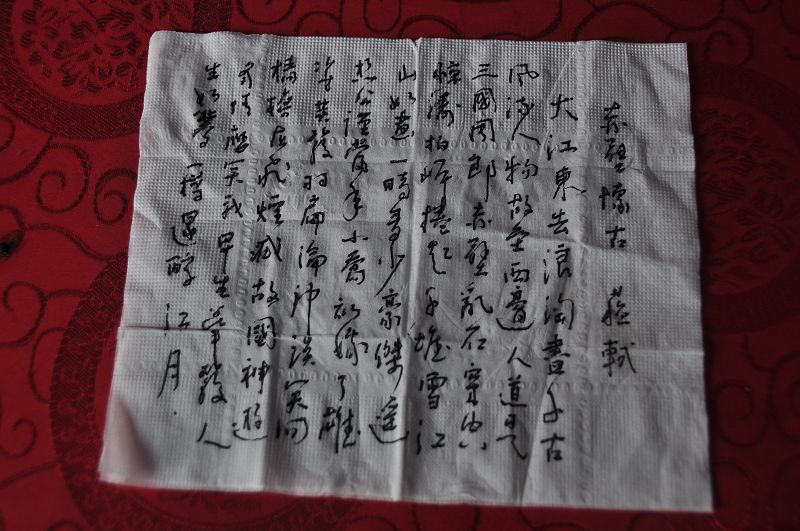 赤壁懷古 蘇軾
大江東去浪淘盡千古
風流人物故壘西邊人道是
三國周郎赤壁亂石穿空
驚濤拍岸捲起千堆雪江
山如畫一時多少豪傑遙
想公謹當年小喬初嫁了雄
姿英發羽扇綸巾談笑間
檣櫓灰飛煙滅故國神遊
多情應笑我早生華髮人
生如夢一樽還酹江月.